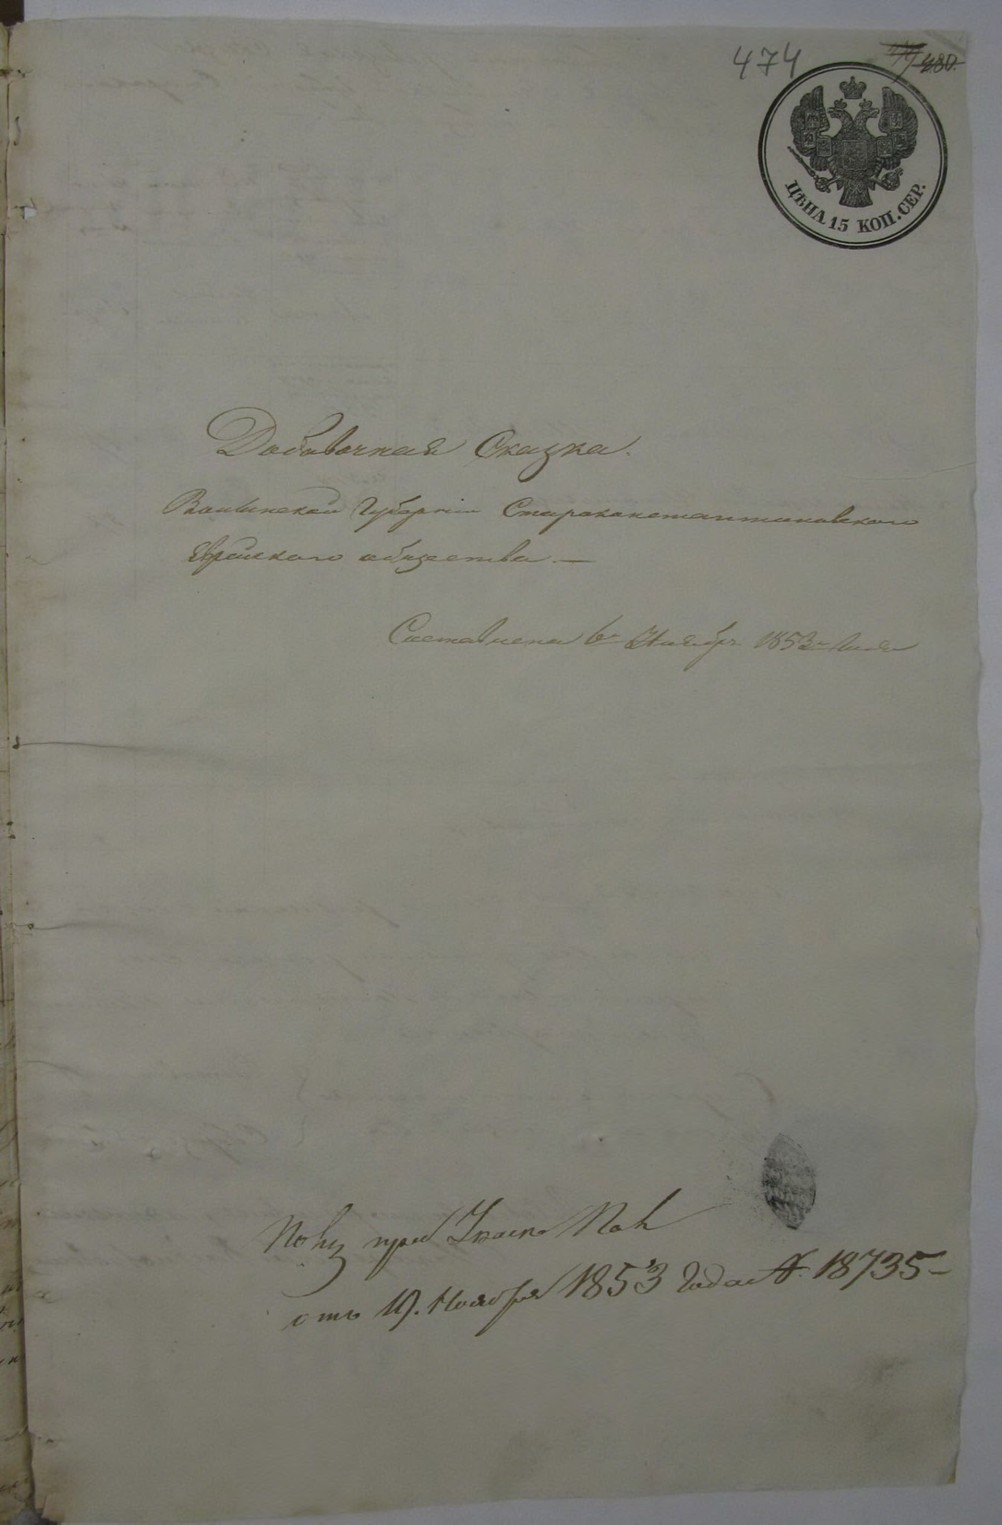 474 480
ЦѢНА 15 КОП. СЕР.
Добавочная Сказка.
Волынской Губернiи Староконстантиновского
Еврейского общества. —
Составлена 6го Ноября 1853го Года
при Указе
отъ 19. Ноября 1853 Года № 18735 —